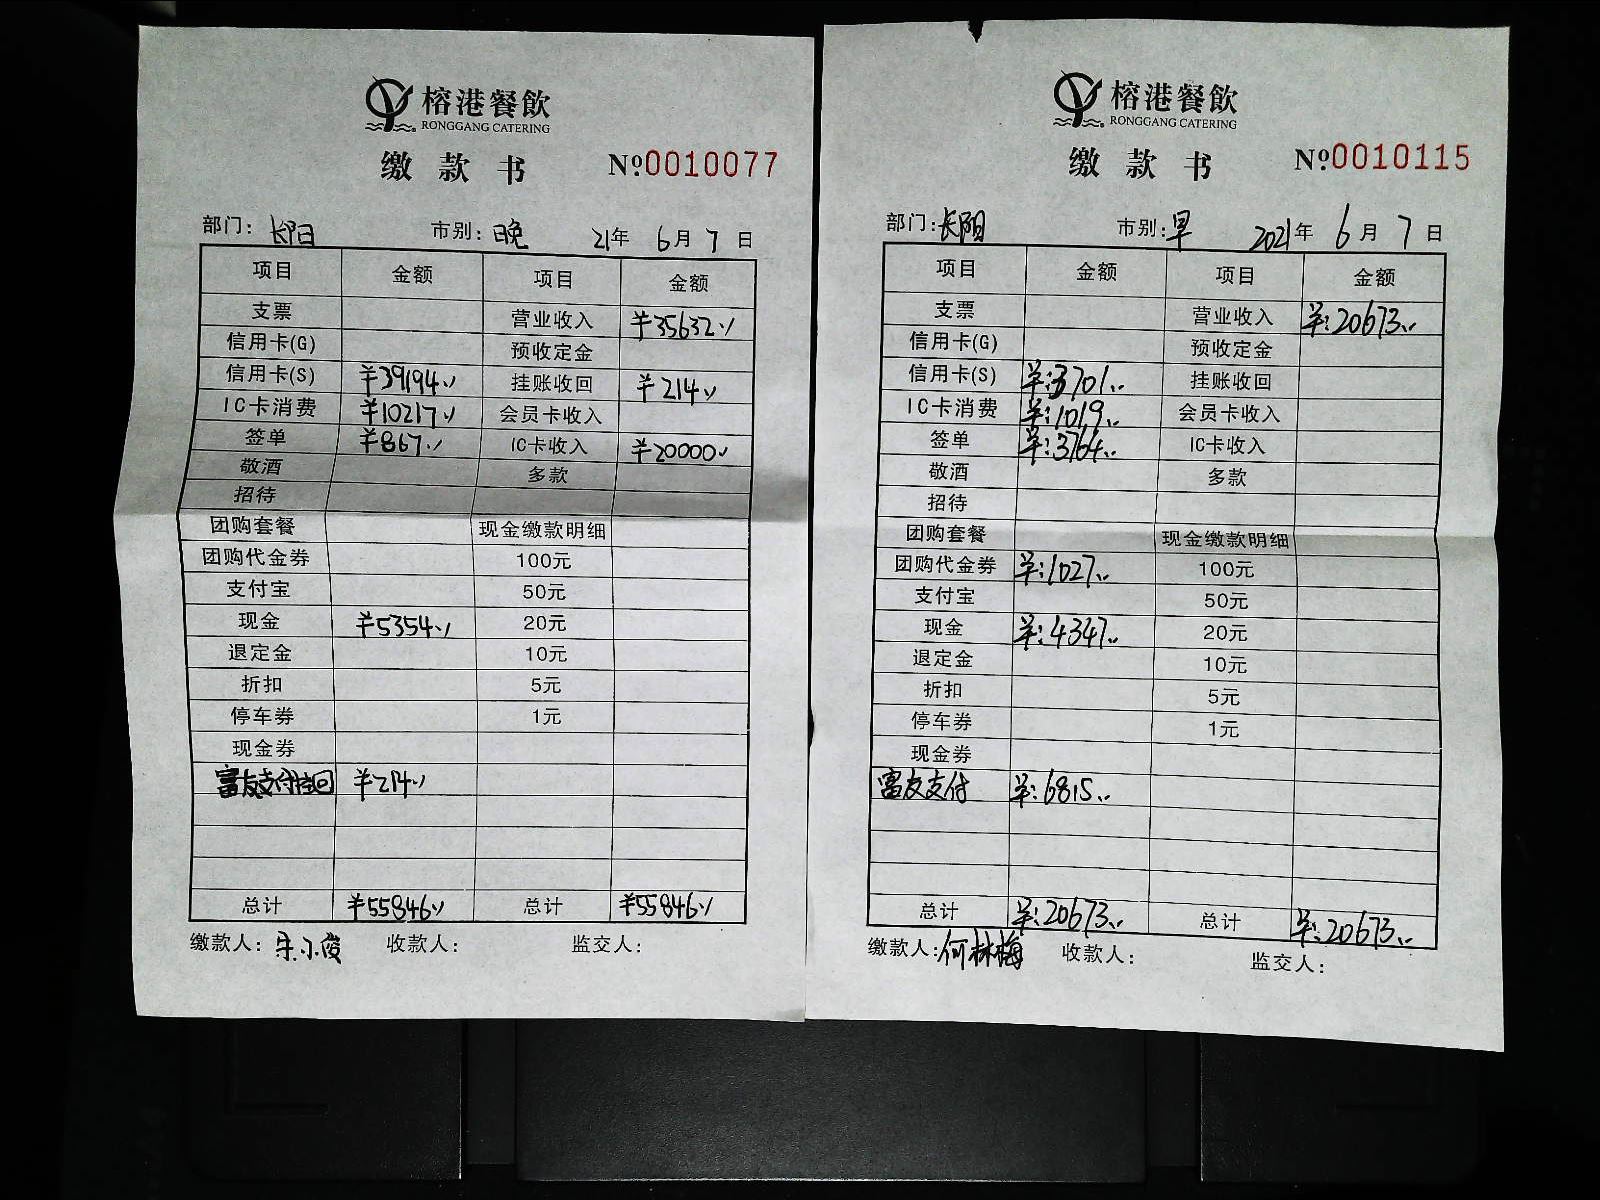 榕港餐飲
RONGGANG CATERING
缴款书 №0010077
部门: 长阳 市别: 晚 21年 6月 7日
项目 金额 项目 金额
支票 营业收入 ¥35632
信用卡(G) 预收定金
信用卡(S) ¥39194 挂账收回 ¥214
IC卡消费 ¥10217 会员卡收入
签单 ¥867 IC卡收入 ¥20000
敬酒 多款
招待
团购套餐 现金缴款明细
团购代金券 100元
支付宝 50元
现金 ¥5354 20元
退定金 10元
折扣 5元
停车券 1元
现金券
富友支付挂回 ¥214
总计 ¥55846 总计 ¥55846
缴款人: 收款人: 监交人:
榕港餐飲
RONGGANG CATERING
缴款书 №0010115
部门: 长阳 市别: 早 2021年 6月 7日
项目 金额 项目 金额
支票 营业收入 ¥:20673
信用卡(G) 预收定金
信用卡(S) ¥:3701 挂账收回
IC卡消费 ¥:1019 会员卡收入
签单 ¥:3764 IC卡收入
敬酒 多款
招待
团购套餐 现金缴款明细
团购代金券 ¥:1027 100元
支付宝 50元
现金 ¥:4347 20元
退定金 10元
折扣 5元
停车券 1元
现金券
富友支付 ¥:6815
总计 ¥:20673 总计 ¥:20673
缴款人: 何林梅 收款人: 监交人: